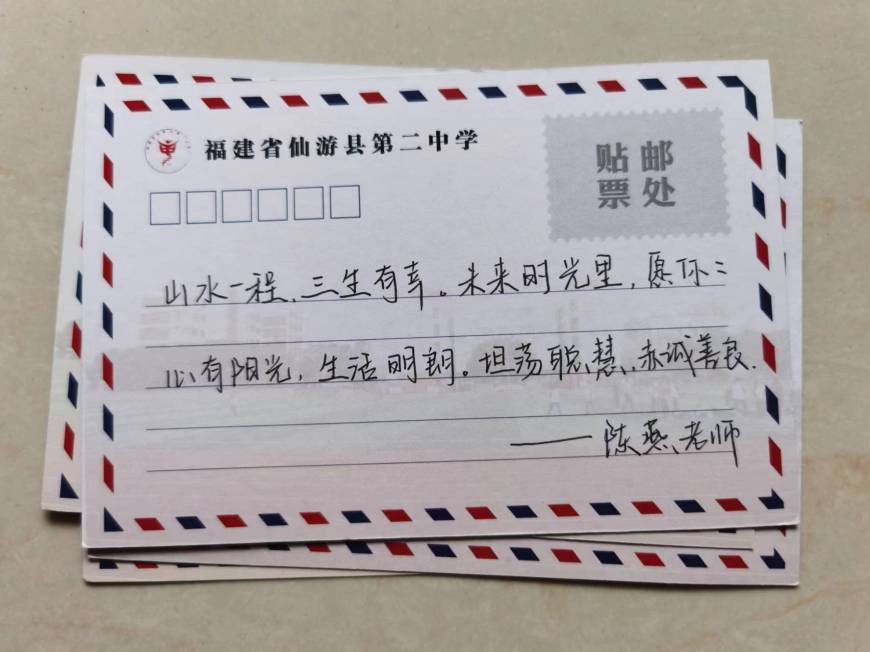 福建省仙游县第二中学
贴邮
票处
山水一程,三生有幸。未来时光里,愿你:
心有阳光,生活明朗。坦荡聪慧,赤诚善良.
——陈燕老师